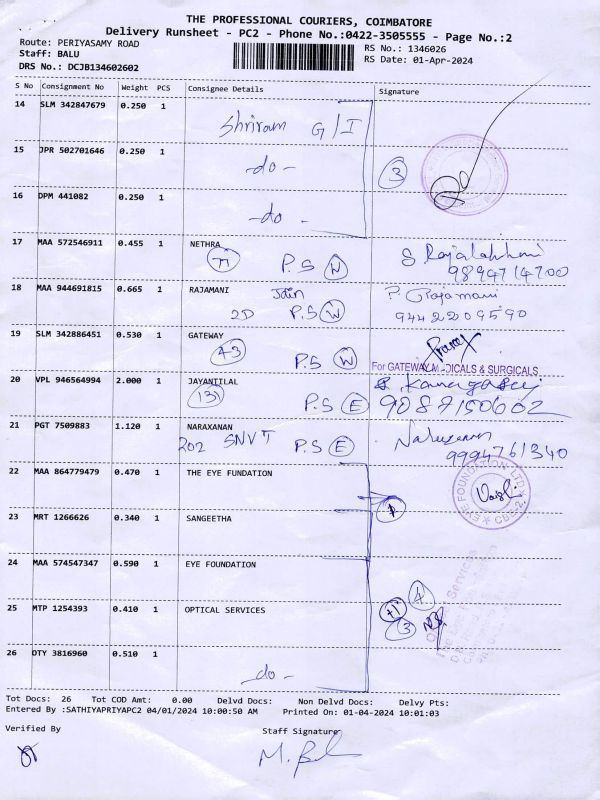 THE PROFESSIONAL COURIERS, COIMBATORE
Delivery Runsheet - PC2 - Phone No.:0422-3505555 - Page No.:2
Route: PERIYASAMY ROAD
RS No.: 1346026
Staff: BALU
RS Date: 01-Apr-2024
DRS No.: DCJB134602602
S No Consignment No Weight PCS Consignee Details Signature
14 SLM 342847679 0.250 1
Shriram G/I
15 JPR 502701646 0.250 1
-do-
3
16 DPM 441082 0.250 1
-do-
17 MAA 572546911 0.455 1 NETHRA
P.S W
9894714700
18 MAA 944691815 0.665 1 RAJAMANI Jain
P. Rajamani
2D P.S W 9442209590
19 SLM 342886451 0.530 1 GATEWAY
43 P.S W
For GATEWAY MEDICALS & SURGICALS
20 VPL 946564994 2.000 1 JAYANTILAL
131 P.S E 9087150602
21 PGT 7509883 1.120 1 NARAXANAN
202 SNVT P.S E 9994761340
22 MAA 864779479 0.470 1 THE EYE FUNDATION
EYE FOUNDATION LTD
23 MRT 1266626 0.340 1 SANGEETHA
24 MAA 574547347 0.590 1 EYE FOUNDATION
4
25 MTP 1254393 0.410 1 OPTICAL SERVICES
+1
3
26 OTY 3816960 0.510 1
-do-
Tot Docs: 26 Tot COD Amt: 0.00 Delvd Docs: Non Delvd Docs: Delvy Pts:
Entered By :SATHIYAPRIYAPC2 04/01/2024 10:00:50 AM Printed On: 01-04-2024 10:01:03
Verified By Staff Signature